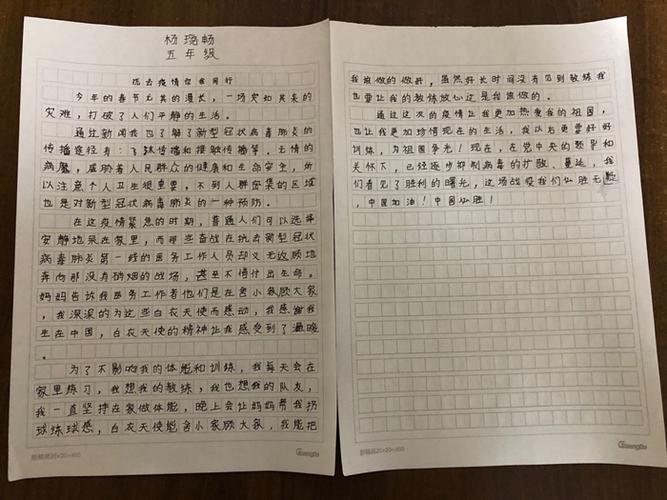 杨璐畅
五年级
抗击疫情你我同行
今年的春节尤其的漫长，一场突如其来的
灾难，打破了人们平静的生活。
通过新闻我也了解了新型冠状病毒肺炎的
传播途径有：飞沫传播和接触传播等。无情的
病魔，威胁着人民群众的健康和生命安全，所
以注意个人卫生很重要，不到人群密集的区域
也是对新型冠状病毒肺炎的一种预防。
在这疫情紧急的时期，普通人们可以选择
安静地呆在家里，而那些奋战在抗击新型冠状
病毒肺炎第一线的医务工作人员却义无反顾地
奔向那没有硝烟的战场，甚至不惜付出生命。
妈妈告诉我医务工作者他们是在舍小家顾大家
，我深深的为这些白衣天使而感动，我感谢我
生在中国，白衣天使的精神让我感受到了温暖
。
为了不影响我的体能和训练，我每天会在
家里练习，我想我的教练，我也想我的队友，
我一直坚持在家做体能，晚上会让妈妈帮我扔
球练球感，白衣天使能舍小家顾大家，我能把
我该做的做好，虽然好长时间没有见到教练我
也要让我的教练放心这是我该做的。
通过这次的疫情让我更加热爱我的祖国，
也让我更加珍惜现在的生活，我以后更要好好
训练，为祖国争光！现在，在党中央的领导和
关怀下，已经逐步抑制病毒的扩散、蔓延，我
们看见了胜利的曙光，这场战疫我们必胜无疑
，中国加油！中国必胜！